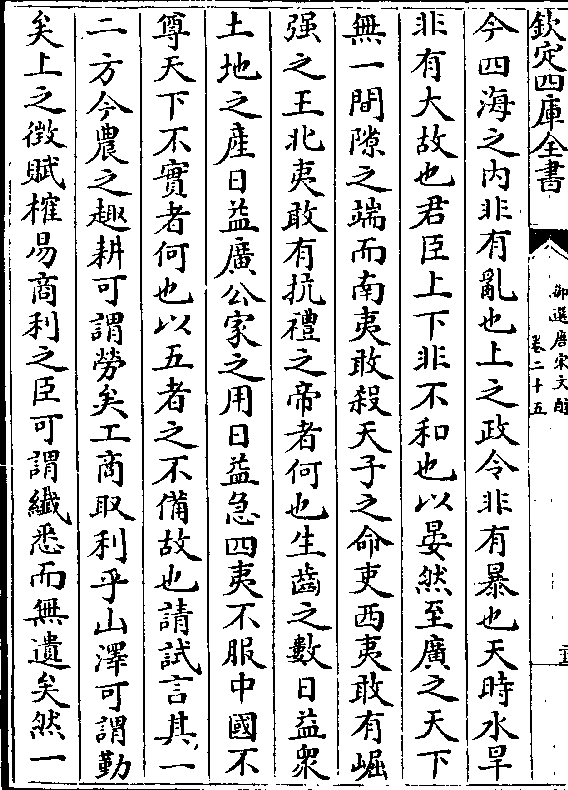 欽定四庫全書
御選唐宋文醇
卷二十五
今四海之内非有亂也上之政令非有暴也天時水旱
非有大故也君臣上下非不和也以晏然至廣之天下
無一間隙之端而南夷敢殺天子之命吏西夷敢有崛
强之王北夷敢有抗禮之帝者何也生齒之數日益衆
土地之産日益廣公家之用日益急四夷不服中國不
尊天下不實者何也以五者之不備故也請試言其一
二方今農之趣耕可謂勞矣工商取利乎山澤可謂勤
矣上之徴賦榷易商利之臣可謂纎悉而無遺矣然一